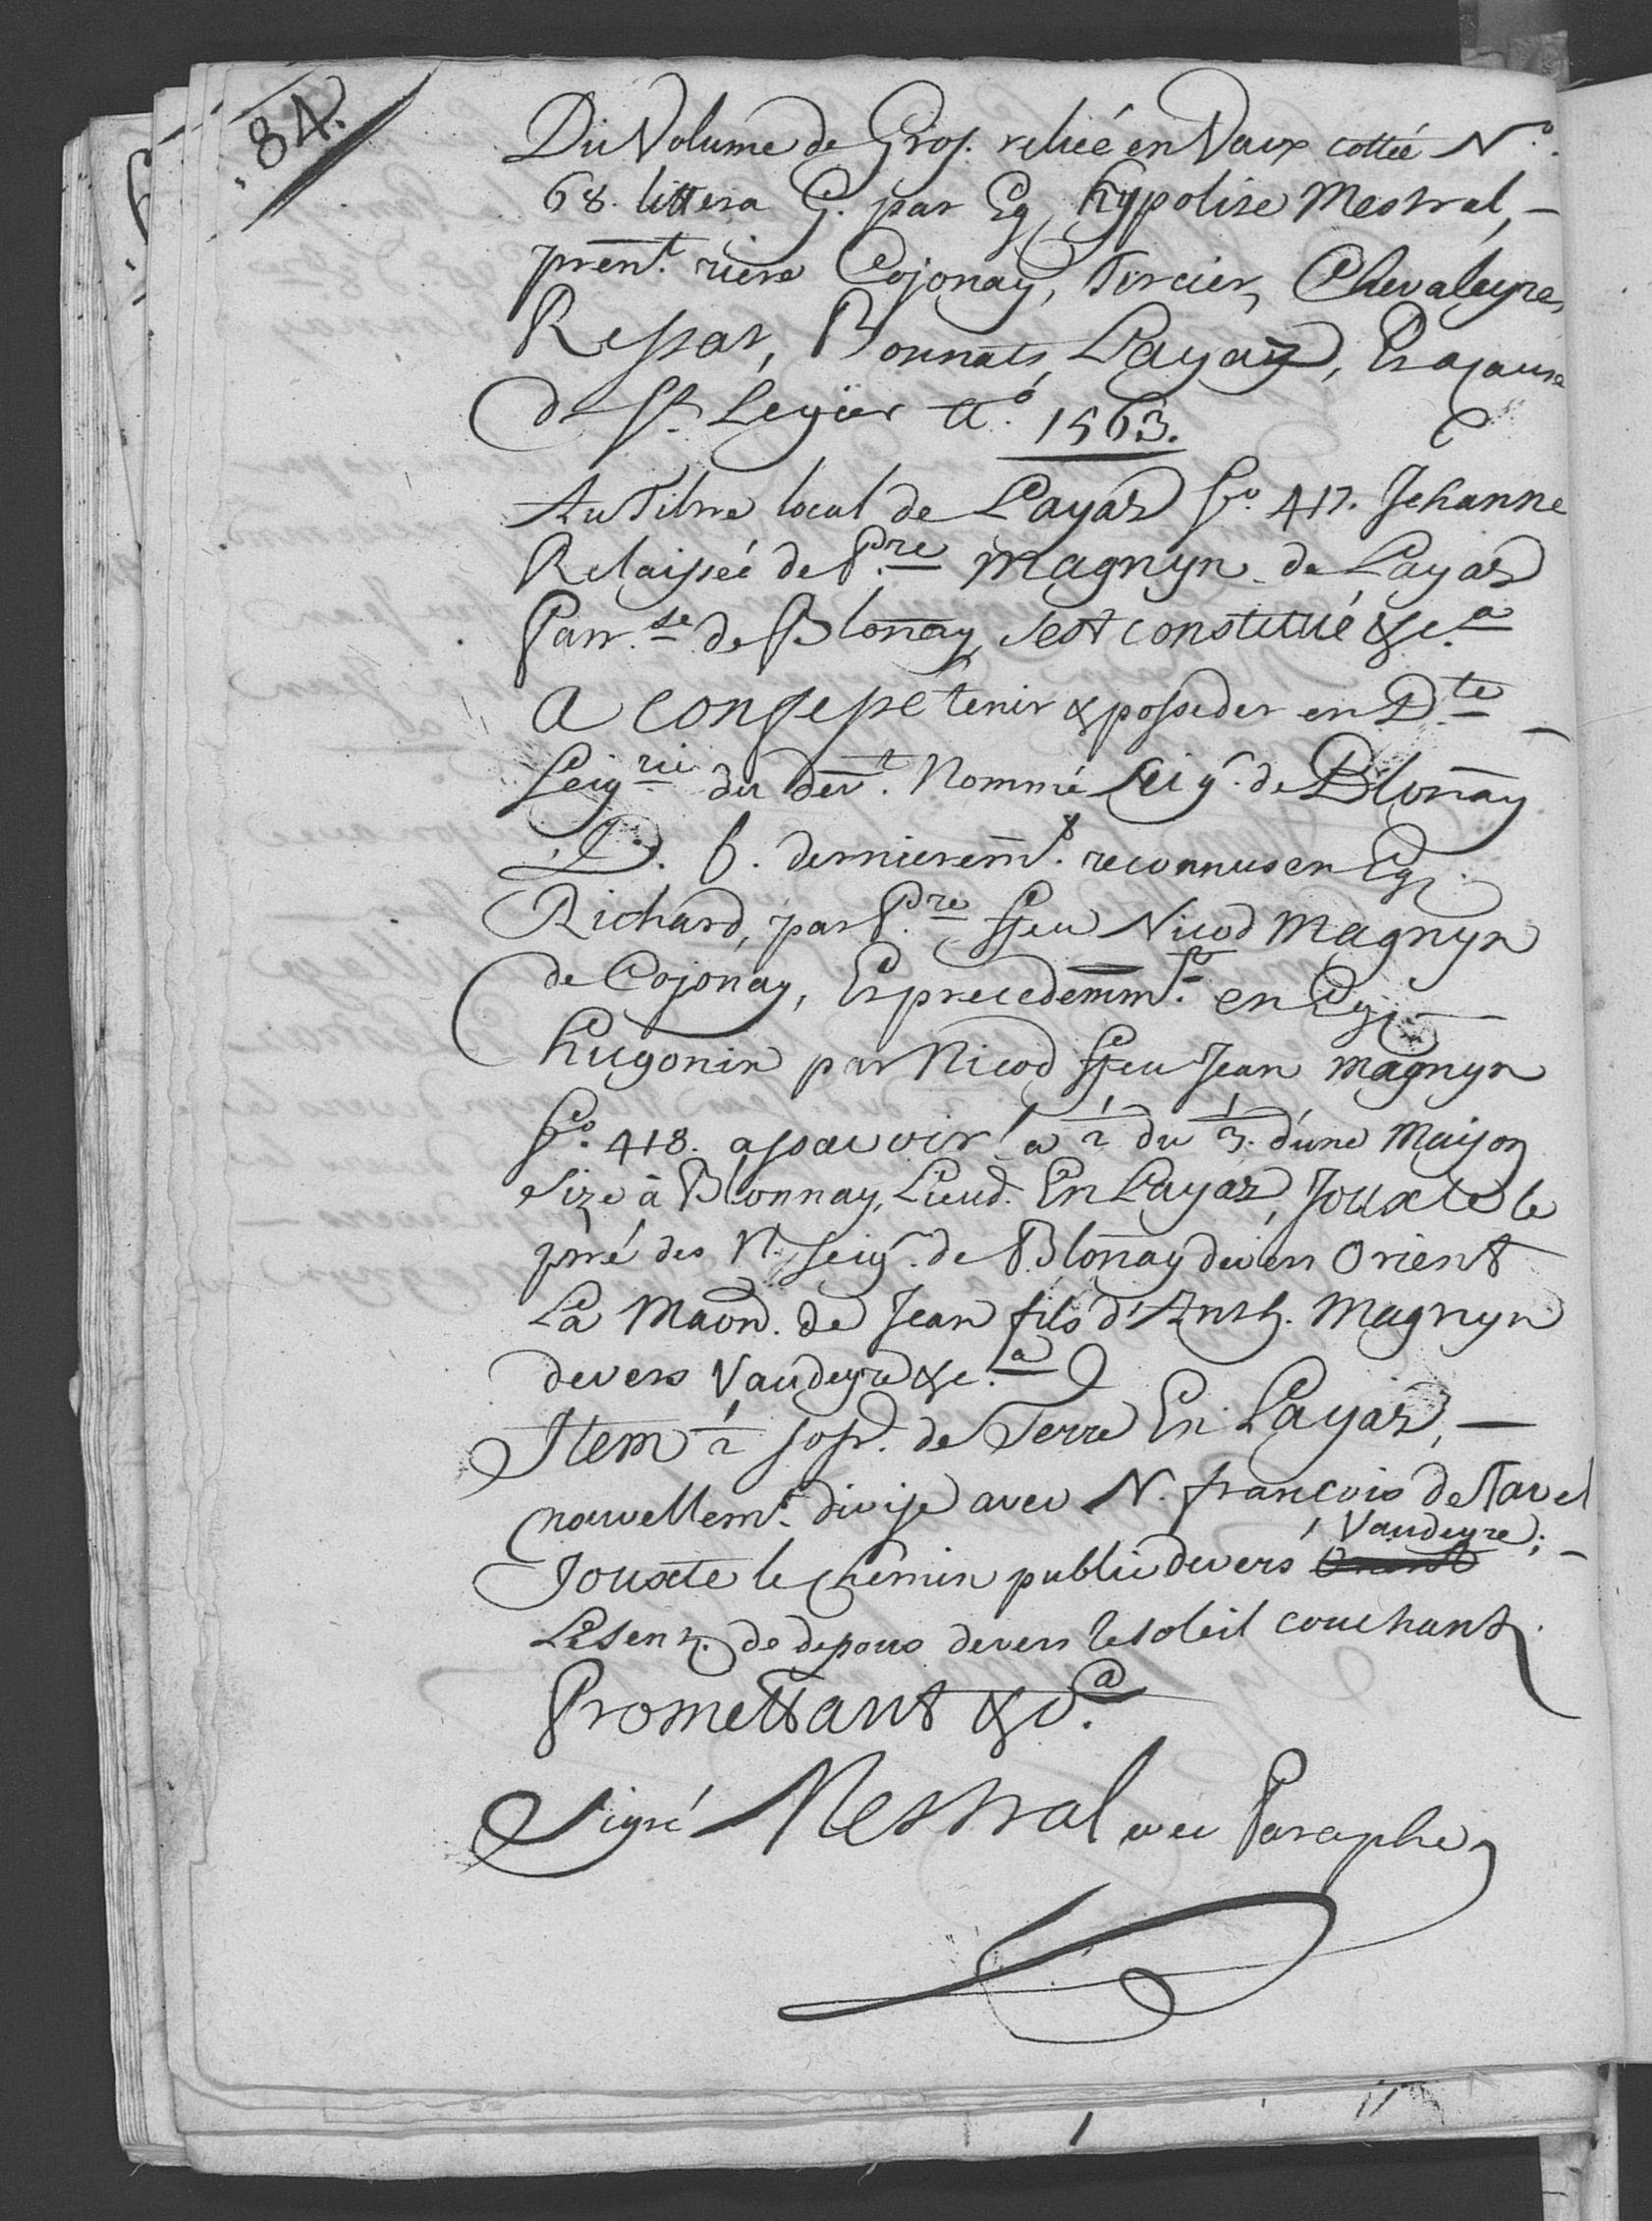 84.
Du Volume de Gros. reliée en Vaux cottée N.o
68. littera G. par Eg. hypolite Mestral,
pren.t riere Cojonay, Tercier, Chevaleyre,
Ressat, Bonnats, Layaz, Et a cause
de St. Legier A.o 1563.
Au Titre local de Layaz f.o 417. Jehanne
Relaissée de P.re Magnyn de Layaz
Parr.se de Blonay, s'est constitué &c.a
A confessé tenir & posseder en D.te
Seig.rie du dev.t Nommé Seig.r de Blonay
D. f. dernierem.t reconnus en Eg.
Richard, par P.re ffeu Nicod Magnyn
de Cojonay, Et precedemm.t en Eg.
hugonin par Nicod ffeu Jean Magnyn
f.o 418. assavoir la 1/2 du 1/3. d'une Maison
size à Blonnay, Lieud. En Layaz, Jouxte le
pré des N. Seig.r de Blonay devers Orient
La Maon. de Jean fils d'Anth. Magnyn
devers Vaudeyre &c.a
Item 1/2 sosp. de Terre En Layaz,
nouvellem.t divisé avec N. françois de Tavel
Vaudeyre;
Jouxte le chemin public devers Orient
Le sent. de depour devers le soleil couchant.
Promettant &c.a
Signé Mestral avec Paraphe